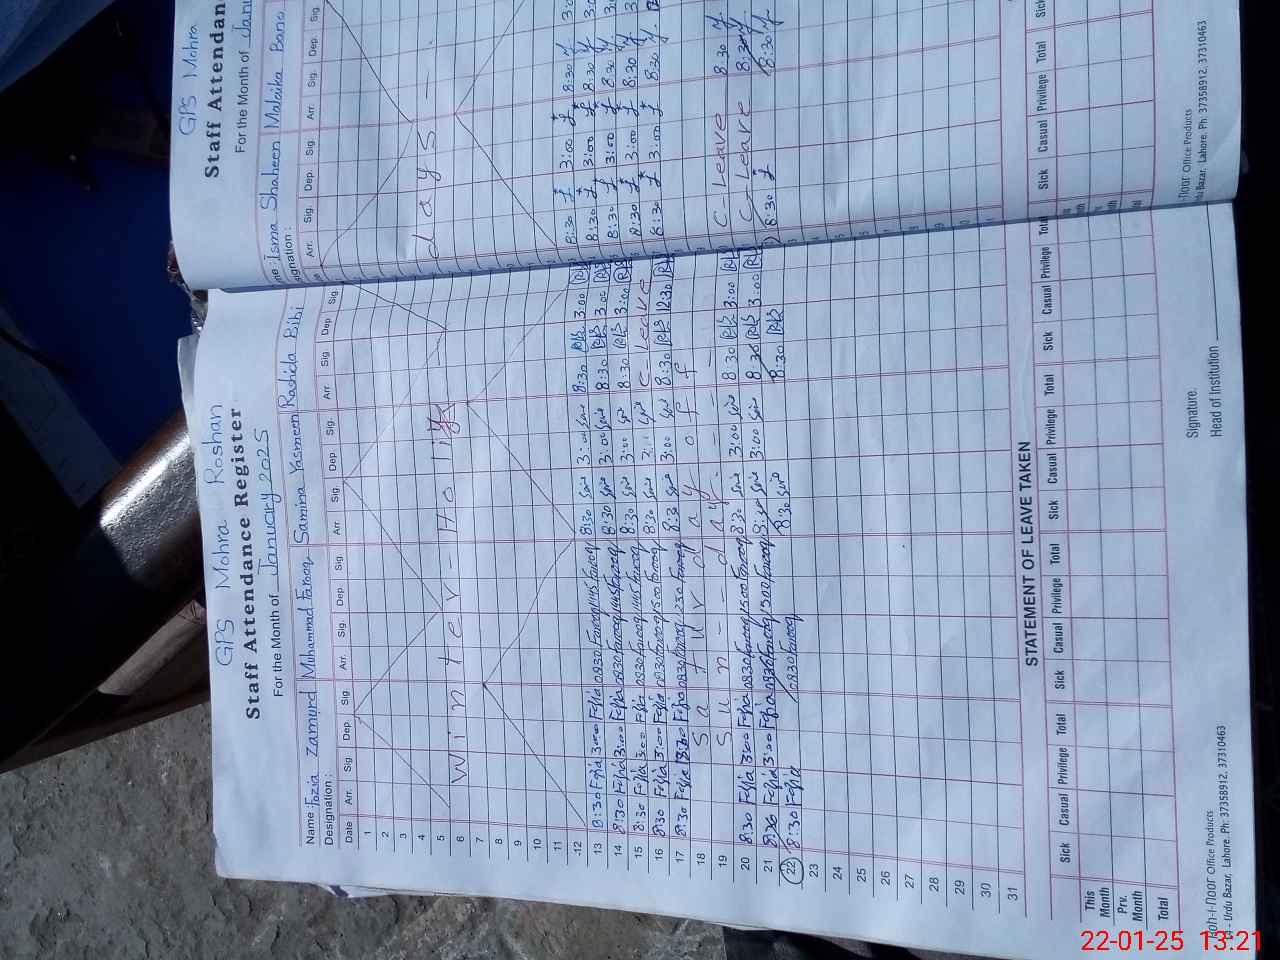 GPS Mohra Roshan
Staff Attendance Register
For the Month of January 2025
Name: Fozia Zamurd Muhammad Farooq Samina Yasmeen Rashida Bibi
Designation:
Date Arr. Sig. Dep. Sig Arr. Sig. Dep Sig Arr Sig. Dep Sig. Arr Sig Dep Sig.
1
2
3
4
5
6 Winter - Holi
7
8
9
10
11
12
13 8:30 Fozia 3:00 Fozia 0830 Farooq 1445 Farooq 8:30 3:00 8:30 3:00
14 8:30 Fozia 3:00 Fozia 0830 Farooq 1445 Farooq 8:30 3:00 8:30 3:00
15 8:30 Fozia 3:00 Fozia 0830 Farooq 1445 Farooq 8:30 3:00 8:30 3:00
16 8:30 Fozia 3:00 Fozia 0830 Farooq 1500 Farooq 8:30 C - Leave
17 8:30 Fozia Fozia 0830 Farooq Farooq 8:30 3:00 8:30 12:30
18 Saturday off
19 Sun - - day
20 8:30 Fozia 3:00 Fozia 0830 Farooq 1500 Farooq 8:30 3:00 8:30 3:00
21 8:30 Fozia 3:00 Fozia 0830 Farooq 1500 Farooq 8:30 3:00 8:30 3:00
22 8:30 Fozia 0830 Farooq 8:30 8:30
23
24
25
26
27
28
29
30
31
STATEMENT OF LEAVE TAKEN
Sick Casual Privilege Total Sick Casual Privilege Total Sick Casual Privilege Total Sick Casual Privilege Total
This Month
Prv. Month
Total
Signature.
Head of Institution
Koh-i-noor Office Products
Urdu Bazar, Lahore. Ph: 37358912, 37310463
GPS Mohra
Staff Attendan
For the Month of Janu
me: Isma Shaheen Malaika Bano
signation:
Arr. Sig. Dep. Sig. Arr. Sig. Dep Sig.
days
8:30 3:00 8:30 3:0
8:30 3:00 8:30 3:0
8:30 3:00 8:30
8:30 3:00 8:30
8:30 3:00 8:30
C - Leave 8:30
C - Leave 8:30
8:30 8:30
Sick Casual Privilege Total Sick
-noor Office Products
du Bazar, Lahore. Ph: 37358912, 37310463
22-01-25 13:21